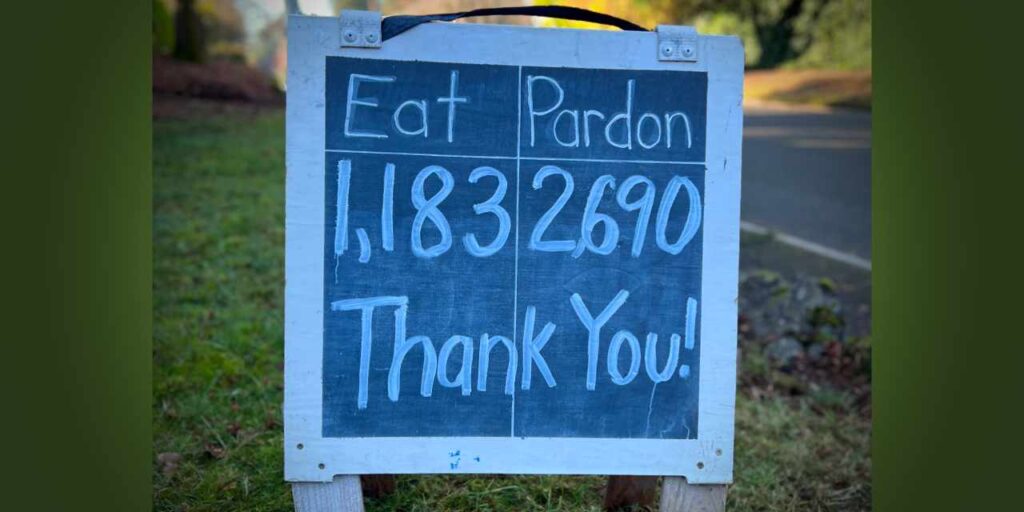 Eat Pardon
1,183 2,690
Thank You!